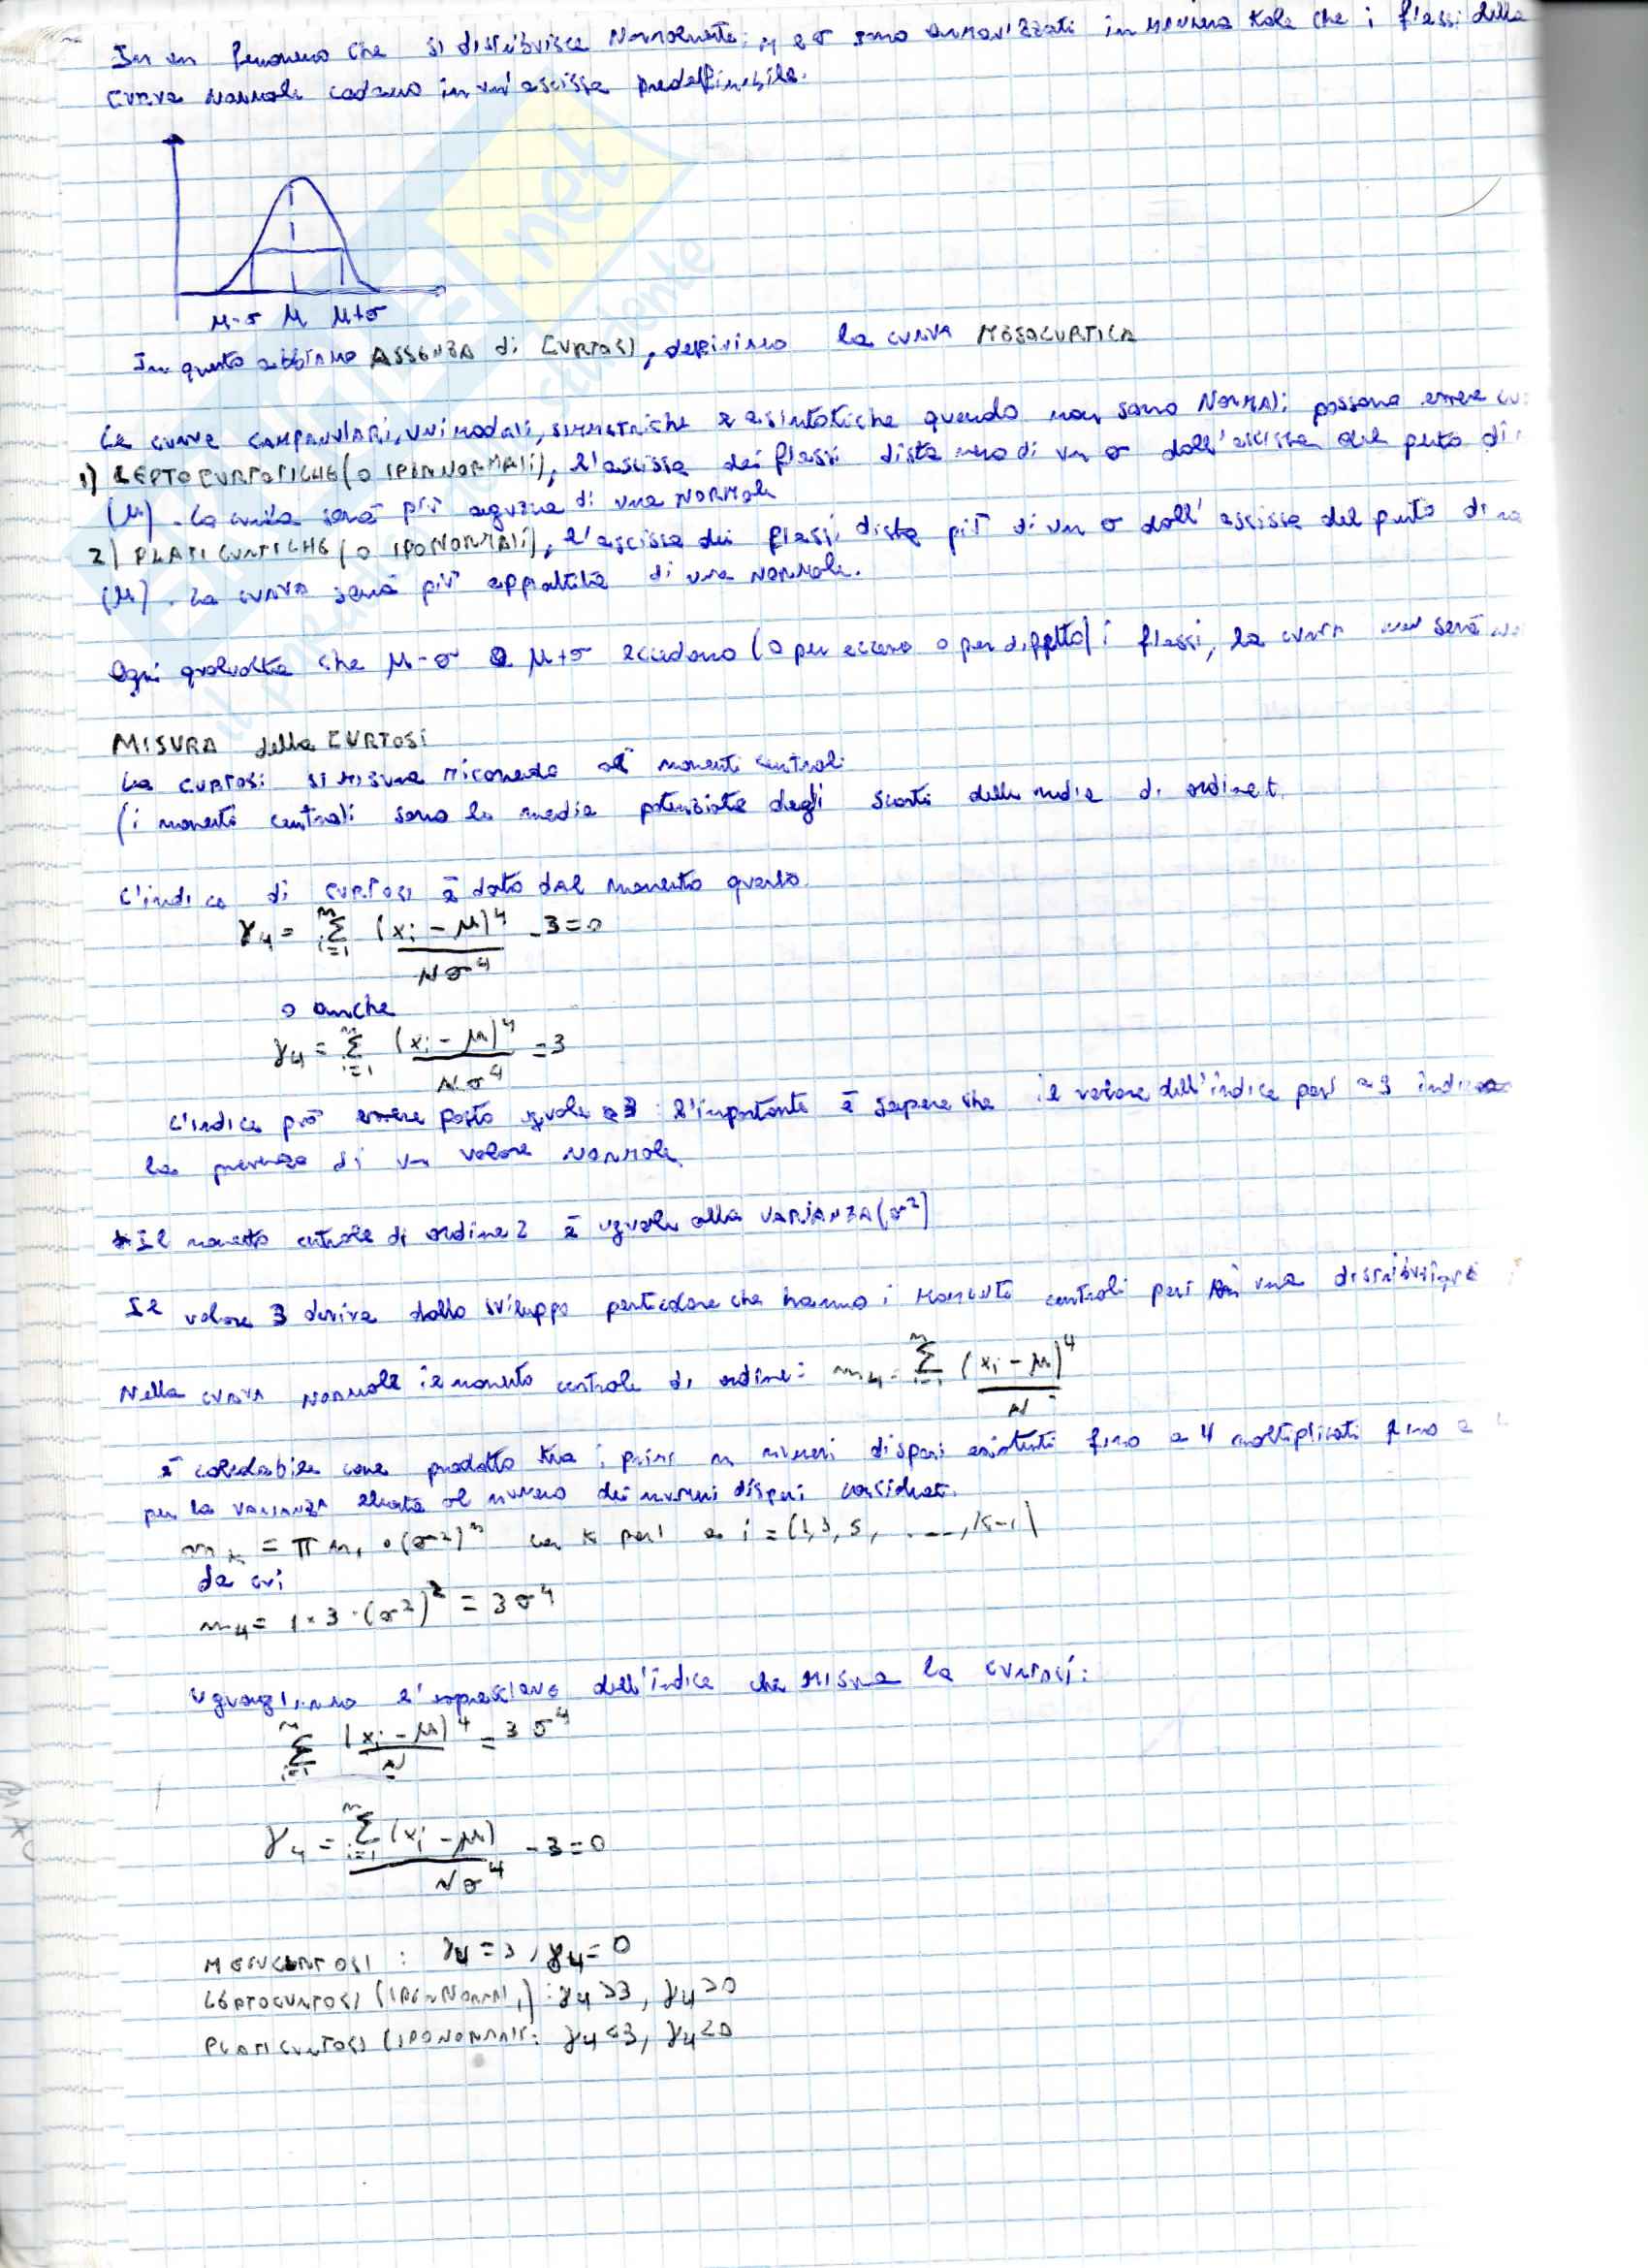 In un fenomeno che si distribuisce Normalmente; μ e σ sono armonizzati in maniera tale che i flessi della
curva Normale cadano in un'ascissa predefinibile.
μ-σ μ μ+σ
In questo abbiamo ASSENZA di CURTOSI, definiamo la curva MESOCURTICA
Le curve CAMPANULARI, UNIMODALI, SIMMETRICHE e asintotiche quando non sono NORMALI possono essere
1) LEPTOCURTOTICHE (O IPERNORMALI), l'ascissa dei flessi dista meno di un σ dall'ascissa del punto di
(μ). La curva sarà più aguzza di una NORMALE
2) PLATICURTICHE (O IPONORMALI), l'ascissa dei flessi dista più di un σ dall'ascissa del punto di
(μ). La curva sarà più appiattita di una NORMALE.
Ogni qualvolta che μ-σ e μ+σ eccedono (o per eccesso o per difetto) i flessi, la curva non sarà
MISURA della CURTOSI
La CURTOSI si misura ricorrendo ai momenti centrali
(i momenti centrali sono la media potenziata degli scarti dalla media di ordine t.
L'indice di CURTOSI è dato dal momento quarto
γ4 = Σ i=1 n (xi - μ)^4 / Nσ^4 - 3 = 0
o anche
γ4 = Σ i=1 n (xi - μ)^4 / Nσ^4 = 3
L'indice può essere posto uguale a 3: l'importante è sapere che il valore dell'indice pari a 3 indica
la presenza di un valore NORMALE.
* Il momento centrale di ordine 2 è uguale alla VARIANZA (σ²)
Il valore 3 deriva dallo sviluppo particolare che hanno i momenti centrali pari di una distribuzione
Nella curva NORMALE il momento centrale di ordine: m4 = Σ i=1 n (xi - μ)^4 / N
è calcolabile come prodotto tra i primi n numeri dispari esistenti fino a 4 moltiplicati fino a
per la VARIANZA elevata al numero dei numeri dispari considerati.
mk = π ni · (σ²)^n con k pari e i = (1, 3, 5, ...., k-1)
da cui
m4 = 1 · 3 · (σ²)² = 3σ^4
Uguagliamo l'espressione dell'indice che misura la CURTOSI:
Σ i=1 n (xi - μ)^4 / N = 3σ^4
γ4 = Σ i=1 n (xi - μ) / Nσ^4 - 3 = 0
: γ4 = 3, γ4 = 0
LEPTOCURTOSI (IPERNORMALI): γ4 > 3, γ4 > 0
PLATICURTOSI (IPONORMALI: γ4 < 3, γ4 < 0
.net
studente